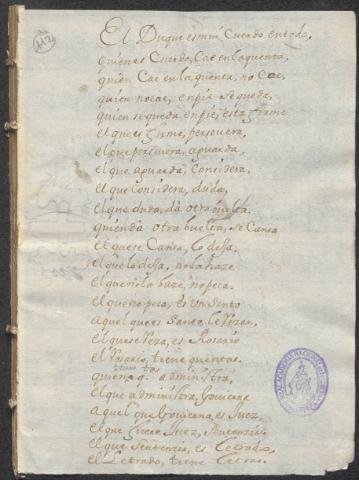 112
El Duque es mui Cuerdo en todo,
quien es Cuerdo, Cae en la quenta,
quien Cae en la quenta, no Cae,
quien no cae, en pie se queda,
quien se queda en pie, esta firme
el que es firme, persevera,
el que persevera, aguarda,
el que aguarda, considera.
el que Considera, duda,
el que duda, dà otra buelta
quien dà otra buelta, se Cansa
el que se Cansa, lo dexa.
el que lo dexa, no la haze
el que no la haze, no peca.
el que no peca, es un santo
a quel que es Santo, le Rezan,
el que se Reza, es Rosario
el Rosario, tiene quentas
quentas
quien administra,
el que administra, Govierna
a quel que Govierna, es Juez,
el que Juez, Sentenzia
el que Sentenzia, es Letrado,
el Letrado, tiene Letras.